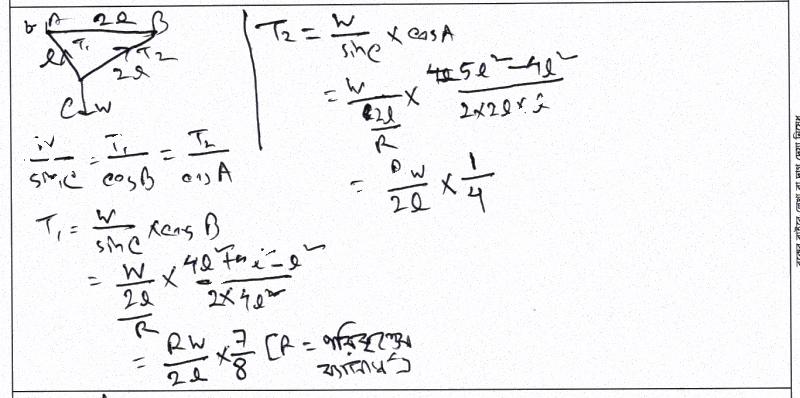 A 2l B
l T₁ T₂ 2l
C W
W/sin C = T₁/cos B = T₂/cos A
T₁ = W/sin C × cos B
= W/(2l/R) × (4l² + 4l² - l²)/(2×4l²)
= RW/2l × 7/8 [R = পরিবৃত্তের
ব্যাসার্ধ]
T₂ = W/sin C × cos A
= W/(2l/R) × (5l² - 4l²)/(2×2l×l)
= RW/2l × 1/4